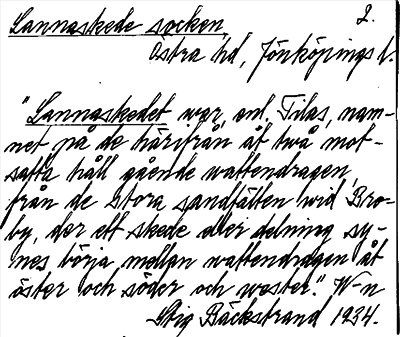 Lannaskede socken, 2.
Östra hd, Jönköpings l.
"Lannaskedet war, enl. Tilas, nam-
net på de härifrån åt twå mot-
satta håll gående wattendragen,
från de stora sandfälten wid Bro-
by, der ett skede eller delning sy-
nes börja mellan wattendragen åt
öster och söder och wester." W-n
Stig Bäckstrand 1934.